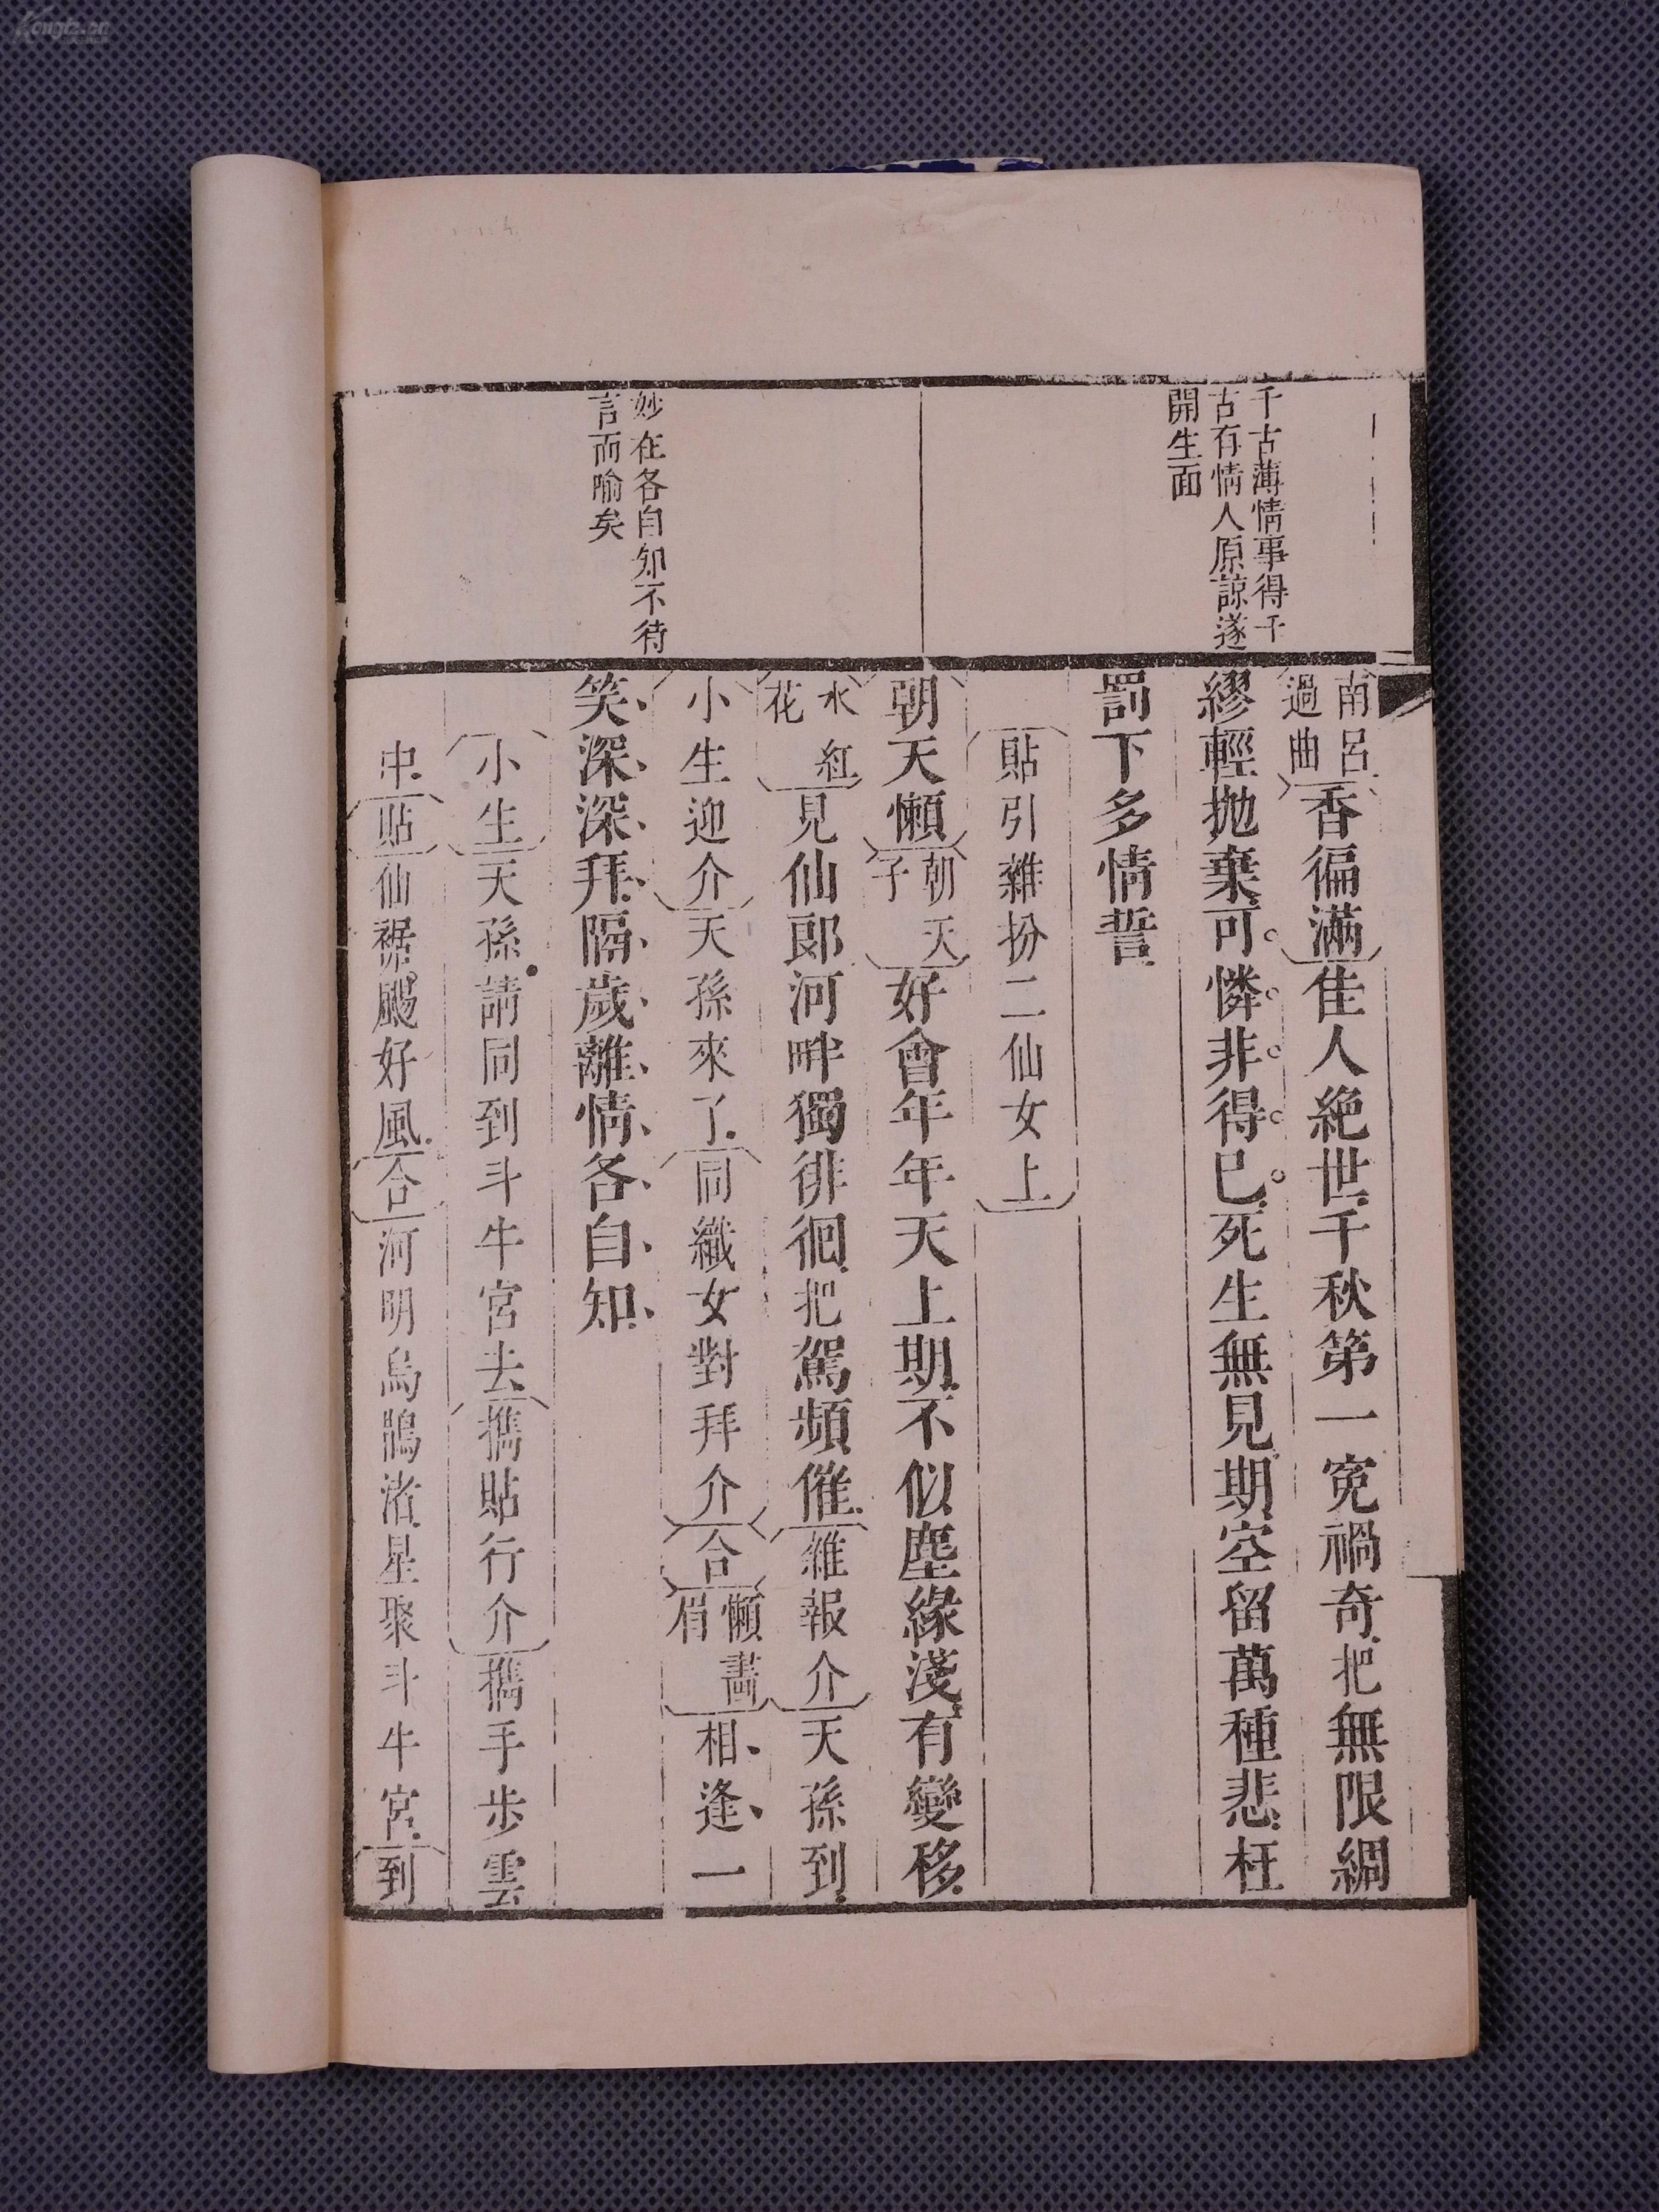 Kongfz.cn
千古薄情事得千
古有情人原諒遂
開生面
妙在各自知不待
言而喻矣
南呂過曲香徧滿佳人絶世千秋第一寃禍奇把無限綢
繆輕拋棄可憐非得已死生無見期空留萬種悲枉
罰下多情誓
貼引雜扮二仙女上
朝天懶朝天子好會年年天上期不似塵緣淺有變移
水紅花見仙郎河畔獨徘徊把駕頻催雜報介天孫到
小生迎介天孫來了同織女對拜介合懶畫眉相逢一
笑深深拜隔歲離情各自知
小生天孫請同到斗牛宮去攜貼行介攜手步雲
中貼仙裾颺好風合河明烏鵲渚星聚斗牛宮到